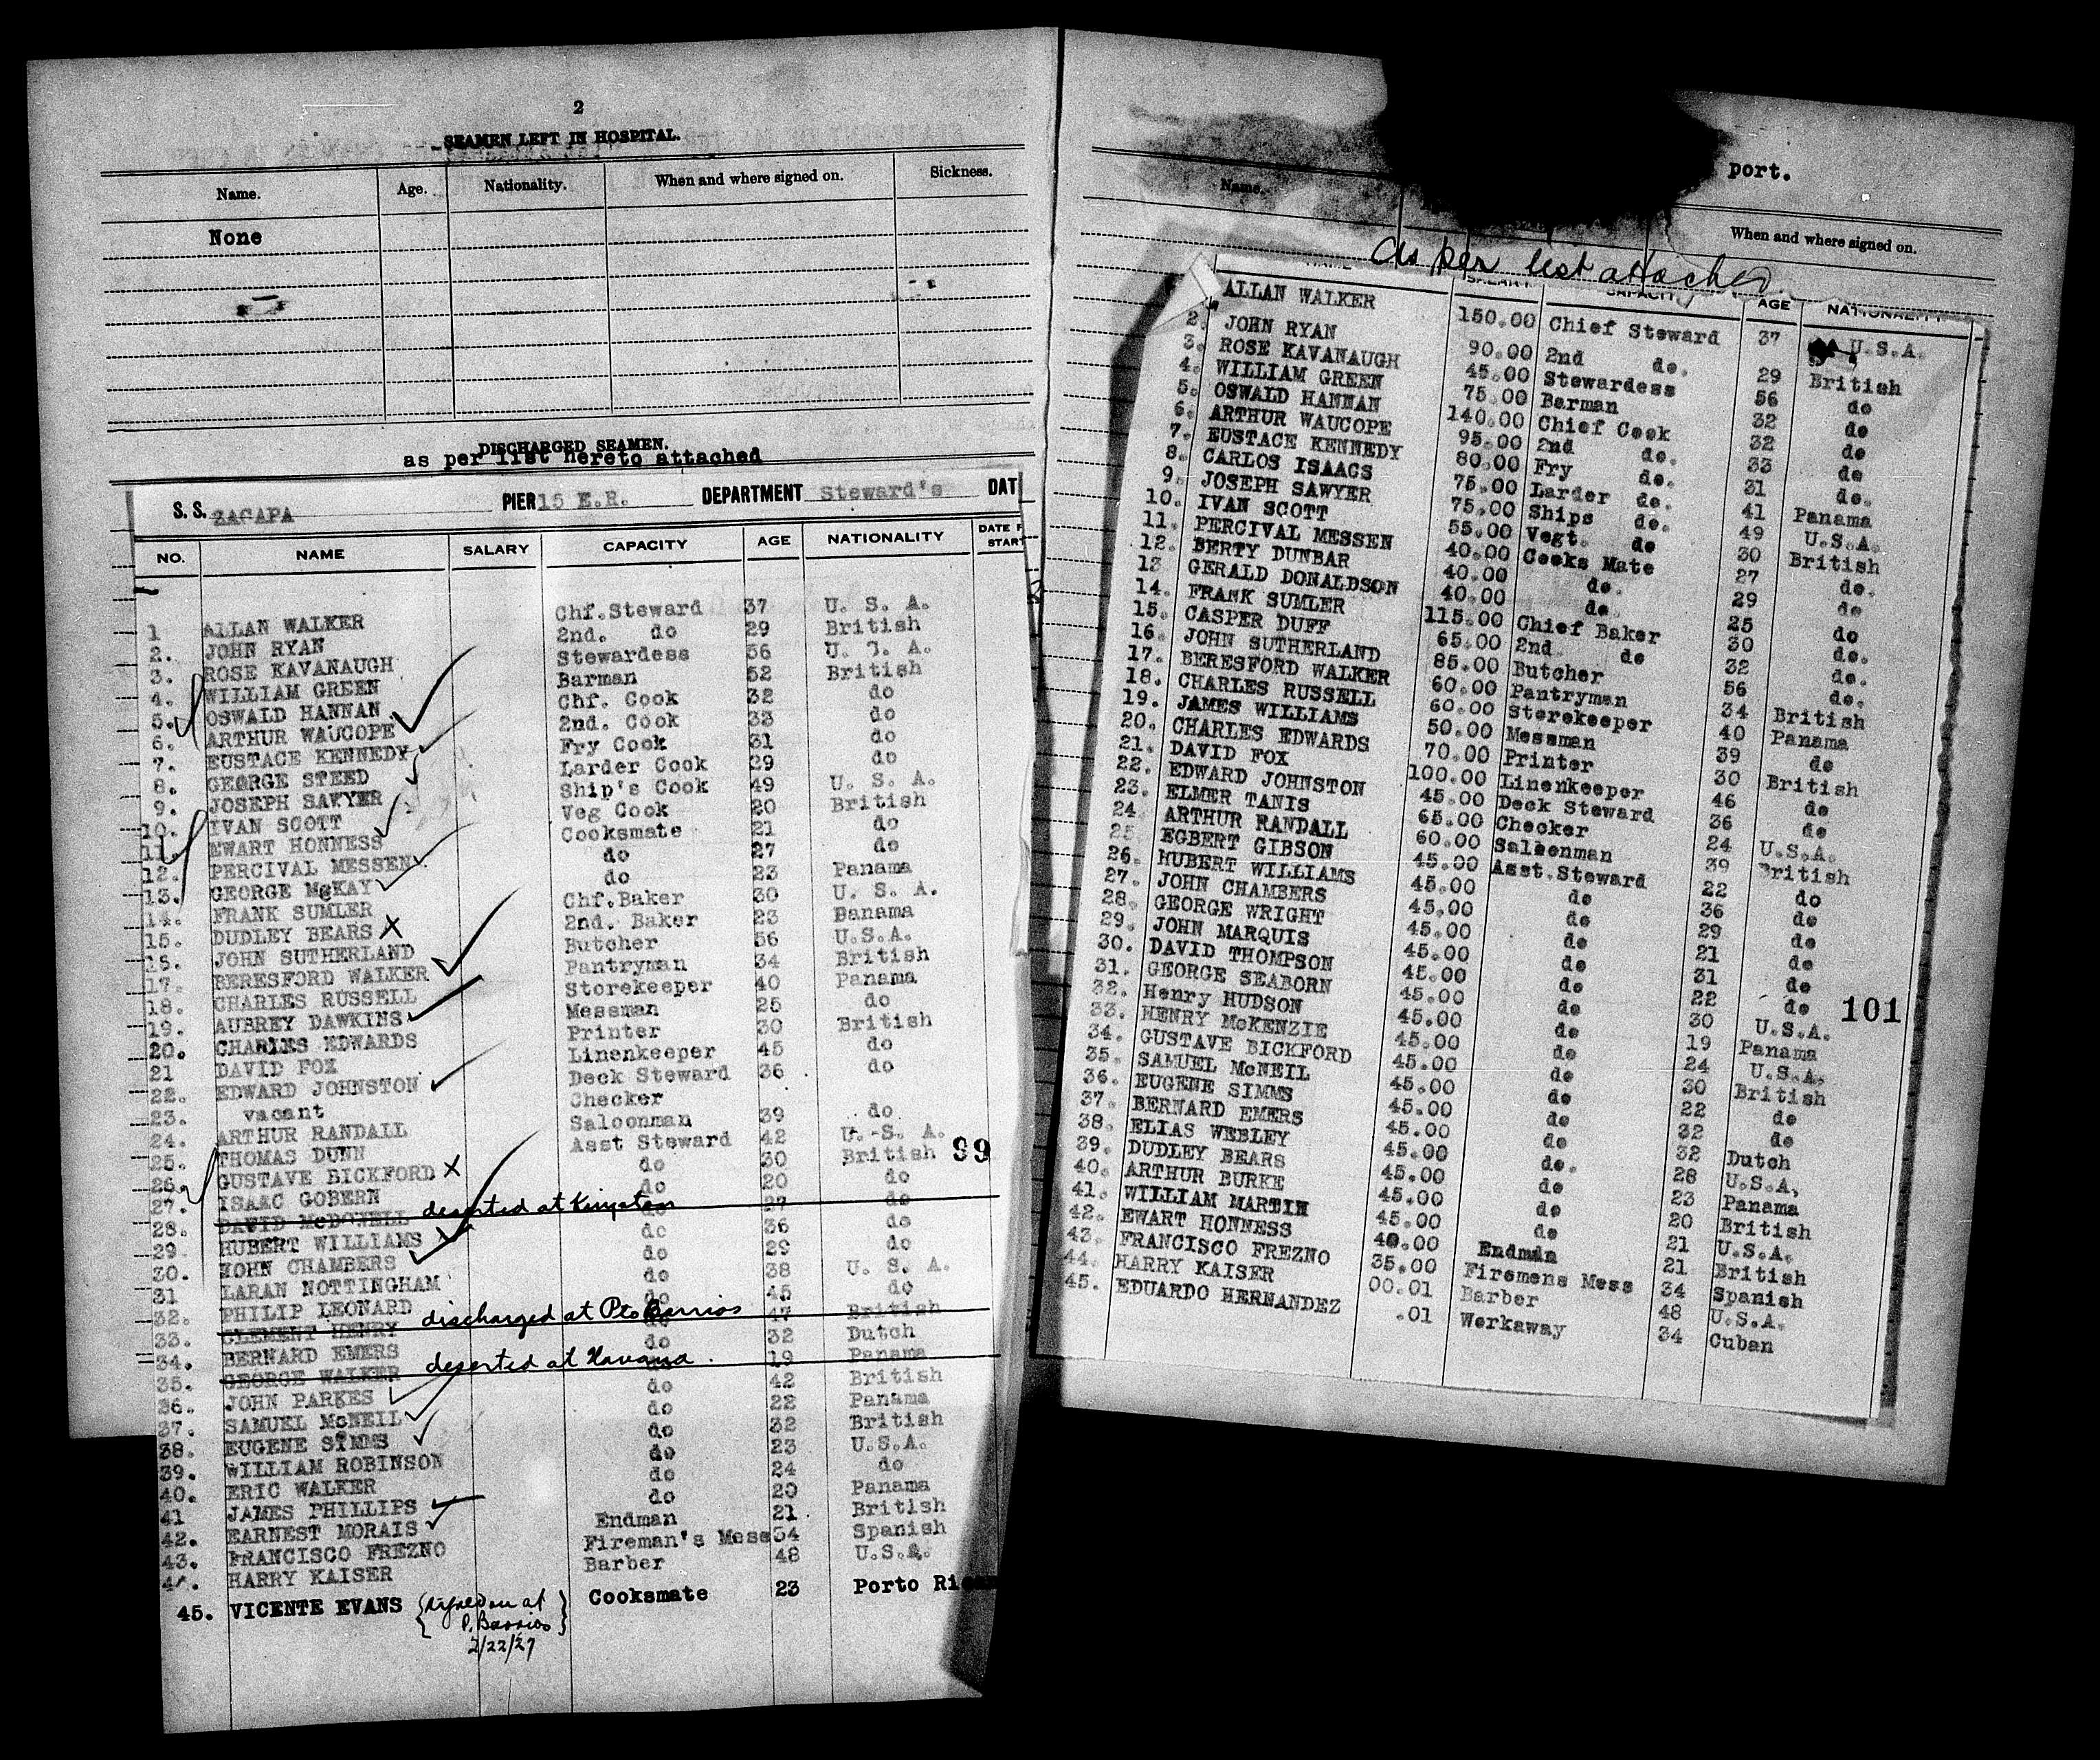 2
SEAMEN LEFT IN HOSPITAL.
Name. Age. Nationality. When and where signed on. Sickness.
None
DISCHARGED SEAMEN.
as per list hereto attached
S. S. ZACAPA PIER 15 E.R. DEPARTMENT Steward's DAT
NO. NAME SALARY CAPACITY AGE NATIONALITY DATE START
1 ALLAN WALKER Chf.Steward 37 U. S. A.
2. JOHN RYAN 2nd. do 29 British
3. ROSE KAVANAUGH Stewardess 56 U. S. A.
4. WILLIAM GREEN Barman 52 British
5. OSWALD HANNAN Chf. Cook 32 do
6. ARTHUR WAUCOPE 2nd. Cook 33 do
7. EUSTACE KENNEDY Fry Cook 31 do
8. GEORGE STEED Larder Cook 29 do
9. JOSEPH SAWYER Ship's Cook 49 U. S. A.
10. IVAN SCOTT Veg Cook 20 British
11. EWART HONNESS Cooksmate 21 do
12. PERCIVAL MESSEN do 27 do
13. GEORGE McKAY do 23 Panama
14. FRANK SUMLER Chf.Baker 30 U. S. A.
15. DUDLEY BEARS X 2nd. Baker 23 Panama
15. JOHN SUTHERLAND Butcher 56 U.S.A.
17. BERESFORD WALKER Pantryman 34 British
18. CHARLES RUSSELL Storekeeper 40 Panama
19. AUBREY DAWKINS Messman 25 do
20. CHARLES EDWARDS Printer 30 British
21 DAVID FOX Linenkeeper 45 do
22. EDWARD JOHNSTON Deck Steward 36 do
23. vacant Checker
24. ARTHUR RANDALL Saloonman 39 do
25. THOMAS DUNN Asst Steward 42 U. S. A.
26. GUSTAVE BICKFORD X do 30 British 99
27. ISAAC GOBERN do 20 do
28. DAVID McDOWELL deserted at Kingston do 27 do
29 HUBERT WILLIAMS do 36 do
30. HOHN CHAMBERS do 29 do
31 LARAN NOTTINGHAM do 38 U. S. A.
32. PHILIP LEONARD do 45 do
33. CLEMENT HENRY discharged at Pto Barrios do 47 British
34. BERNARD EMERS do 32 Dutch
35. GEORGE WALKER deserted at Havana. do 19 Panama
36. JOHN PARKES do 42 British
37. SAMUEL McNEIL do 22 Panama
38. EUGENE SIMMS do 32 British
39. WILLIAM ROBINSON do 23 U.S.A.
40. ERIC WALKER do 24 do
41 JAMES PHILLIPS do 20 Panama
42. EARNEST MORAIS Endman 21 British
43. FRANCISCO FREZNO Fireman's Mess 34 Spanish
44. HARRY KAISER Barber 48 U.S.A.
45. VICENTE EVANS {signed on at P. Barrios 2/22/27} Cooksmate 23 Porto
port.
Name. When and where signed on.
As per list attached
NAME SALARY CAPACITY AGE NATIONALITY
ALLAN WALKER 150.00 Chief Steward 37 U.S.A.
2. JOHN RYAN 90.00 2nd do. 29 British
3. ROSE KAVANAUGH 45.00 Stewardess 56 do
4. WILLIAM GREEN 75.00 Barman 32 do
5. OSWALD HANNAN 140.00 Chief Cook 32 do
6. ARTHUR WAUCOPE 95.00 2nd do. 33 do
7. EUSTACE KENNEDY 80.00 Fry do. 31 do.
8. CARLOS ISAACS 75.00 Larder do. 41 Panama
9. JOSEPH SAWYER 75.00 Ships do. 49 U.S.A.
10. IVAN SCOTT 55.00 Vegt. do 30 British
11. PERCIVAL MESSEN 40.00 Cooks Mate 27 do.
12. BERTY DUNBAR 40.00 do. 29 do
13 GERALD DONALDSON 40.00 do. 25 do
14. FRANK SUMLER 115.00 Chief Baker 30 do.
15. CASPER DUFF 65.00 2nd do 32 do.
16. JOHN SUTHERLAND 85.00 Butcher 56 do.
17. BERESFORD WALKER 60.00 Pantryman 34 British
18. CHARLES RUSSELL 60.00 Storekeeper 40 Panama
19. JAMES WILLIAMS 50.00 Messman 39 do
20. CHARLES EDWARDS 70.00 Printer 30 British
21. DAVID FOX 100.00 Linenkeeper 46 do
22. EDWARD JOHNSTON 45.00 Deck Steward 36 do
23. ELMER TANIS 65.00 Checker 24 U.S.A.
24. ARTHUR RANDALL 60.00 Saloonman 39 British
25 EGBERT GIBSON 45.00 Asst.Steward 22 do
26. HUBERT WILLIAMS 45.00 do 36 do
27. JOHN CHAMBERS 45.00 do 29 do
28. GEORGE WRIGHT 45.00 do 21 do
29. JOHN MARQUIS 45.00 do 31 do
30. DAVID THOMPSON 45.00 do 22 do 101
31. GEORGE SEABORN 45.00 do 30 U.S.A.
32. Henry HUDSON 45.00 do 19 Panama
33. HENRY McKENZIE 45.00 do 24 U.S.A.
34. GUSTAVE BICKFORD 45.00 do 30 British
35. SAMUEL McNEIL 45.00 do 22 do
36. EUGENE SIMMS 45.00 do 32 do
37. BERNARD EMERS 45.00 do 32 Dutch
38. ELIAS WEBLEY 45.00 do. 28 U.S.A.
39. DUDLEY BEARS 45.00 do 23 Panama
40. ARTHUR BURKE 45.00 do 20 British
41. WILLIAM MARTIN 45.00 do 21 U.S.A.
42. EWART HONNESS 40.00 Endman 21 British
43. FRANCISCO FREZNO 35.00 Firemens Mess 34 Spanish
44. HARRY KAISER 00.01 Barber 48 U.S.A.
45. EDUARDO HERNANDEZ .01 Workaway 34 Cuban